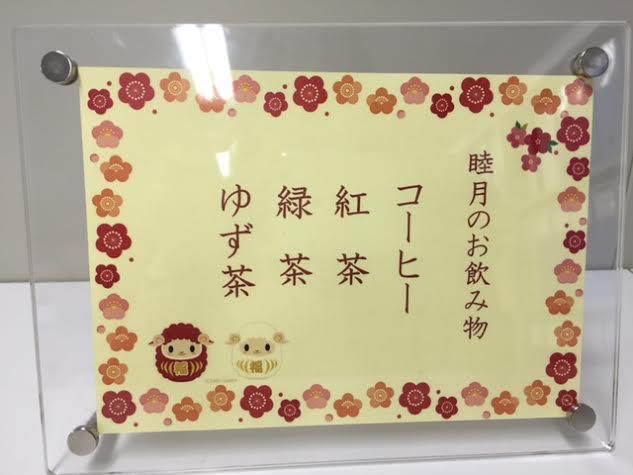 睦月のお飲み物
コーヒー
紅茶
緑茶
ゆず茶
福
福